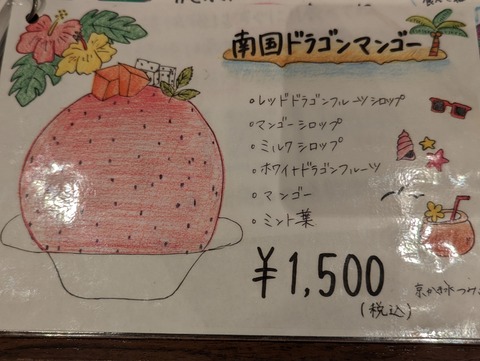 南国ドラゴンマンゴー
○レッドドラゴンフルーツシロップ
○マンゴーシロップ
○ミルクシロップ
○ホワイトドラゴンフルーツ
○マンゴー
○ミント葉
¥1,500
(税込)
京かき氷つみき